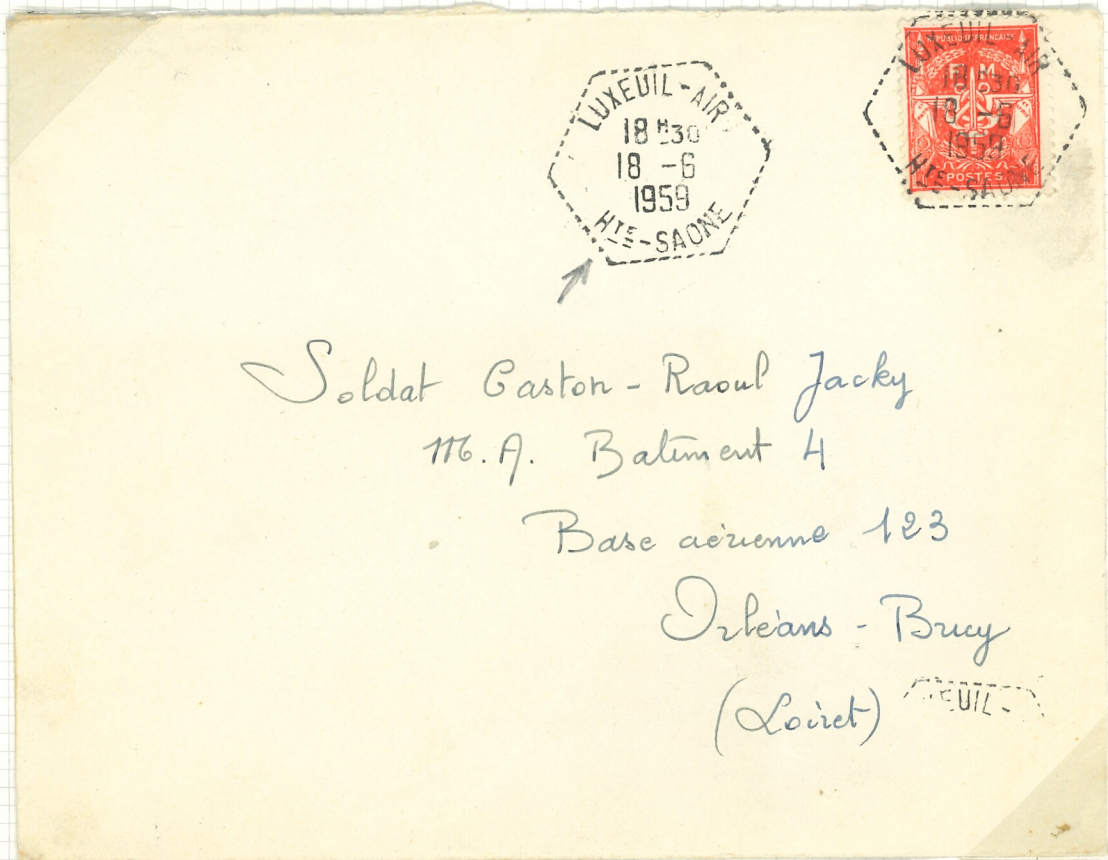 LUXEUIL-AIR
18 H30
18 -6
1959
HTE-SAONE
REPUBLIQUE FRANCAISE
F M
POSTES
LUXEUIL-AIR
18 H30
18 -6
1959
HTE-SAONE
Soldat Gaston-Raoul Jacky
M.A. Batiment 4
Base aérienne 123
Orléans - Bricy
(Loiret)
XEUIL-